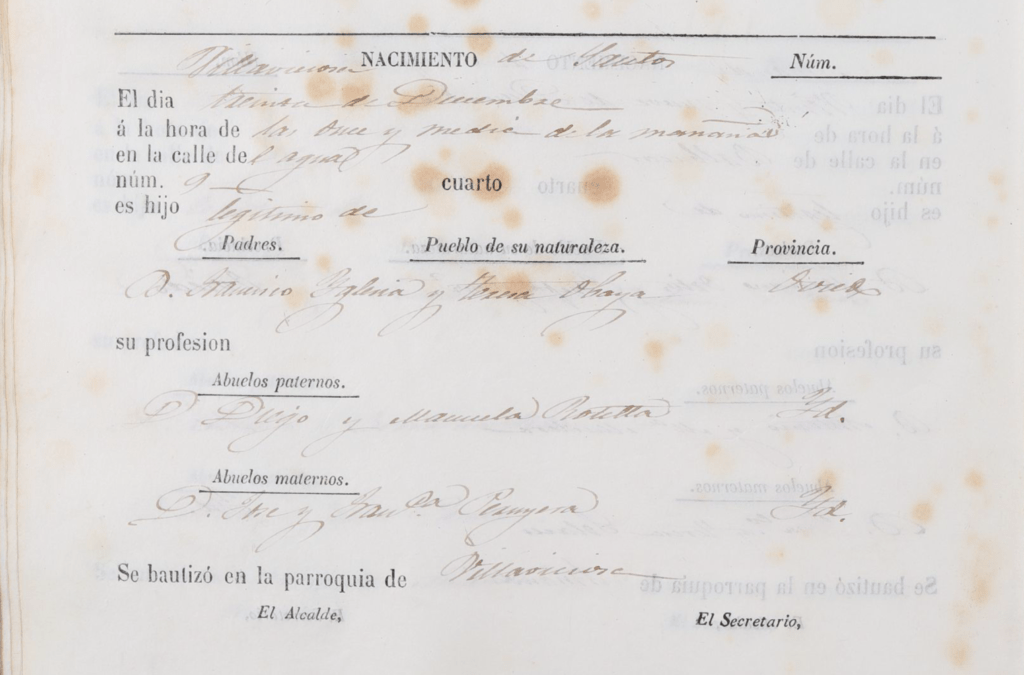 Villaviciosa NACIMIENTO de Santos Núm.
El dia treinta de Diciembre
á la hora de las Once y media de la mañana
en la calle del agua
núm. 9 cuarto
es hijo legitimo de
Padres. Pueblo de su naturaleza. Provincia.
D. Francisco Iglesia y Teresa Obaya Oviedo
su profesion
Abuelos paternos.
D. Diego y Manuela Id.
Abuelos maternos.
D. José y Fran.ca Id.
Se bautizó en la parroquia de Villaviciosa
El Alcalde, El Secretario,